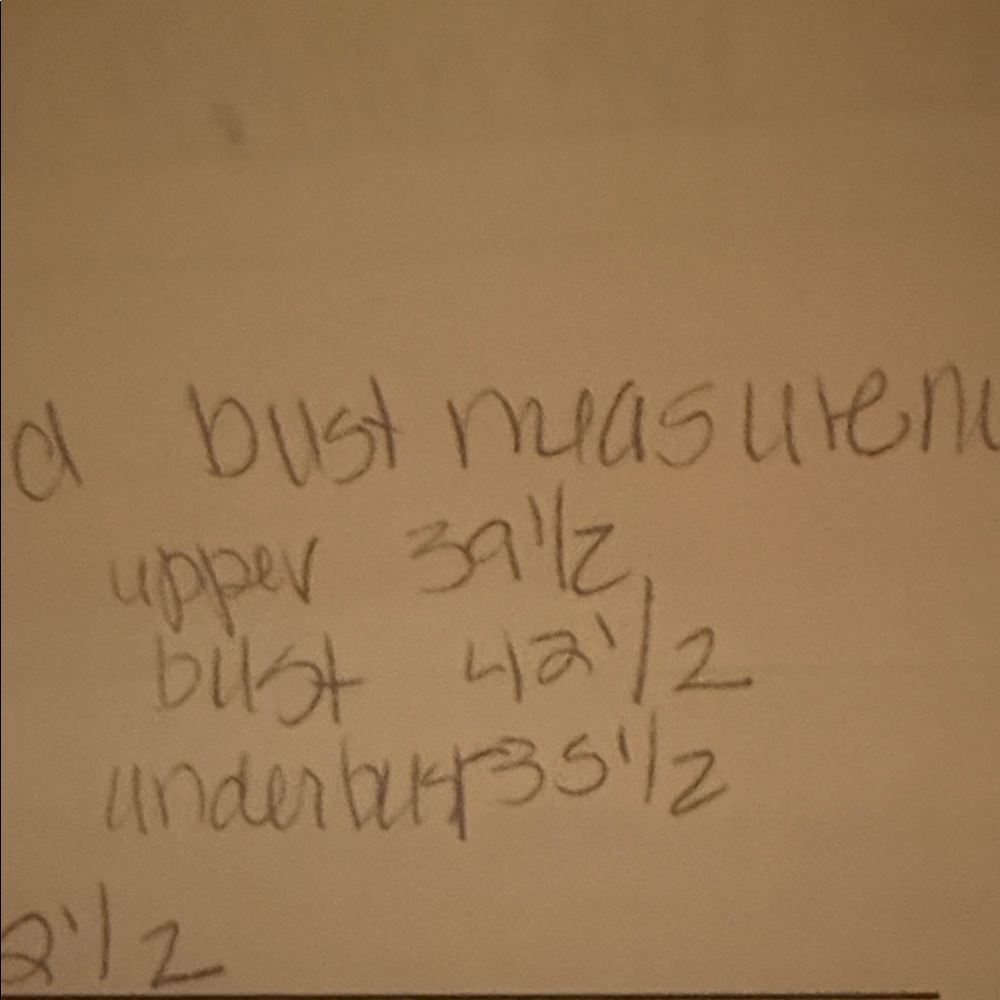 d bust measurem
upper 39 1/2
bust 42 1/2
underbust 35 1/2
2 1/2